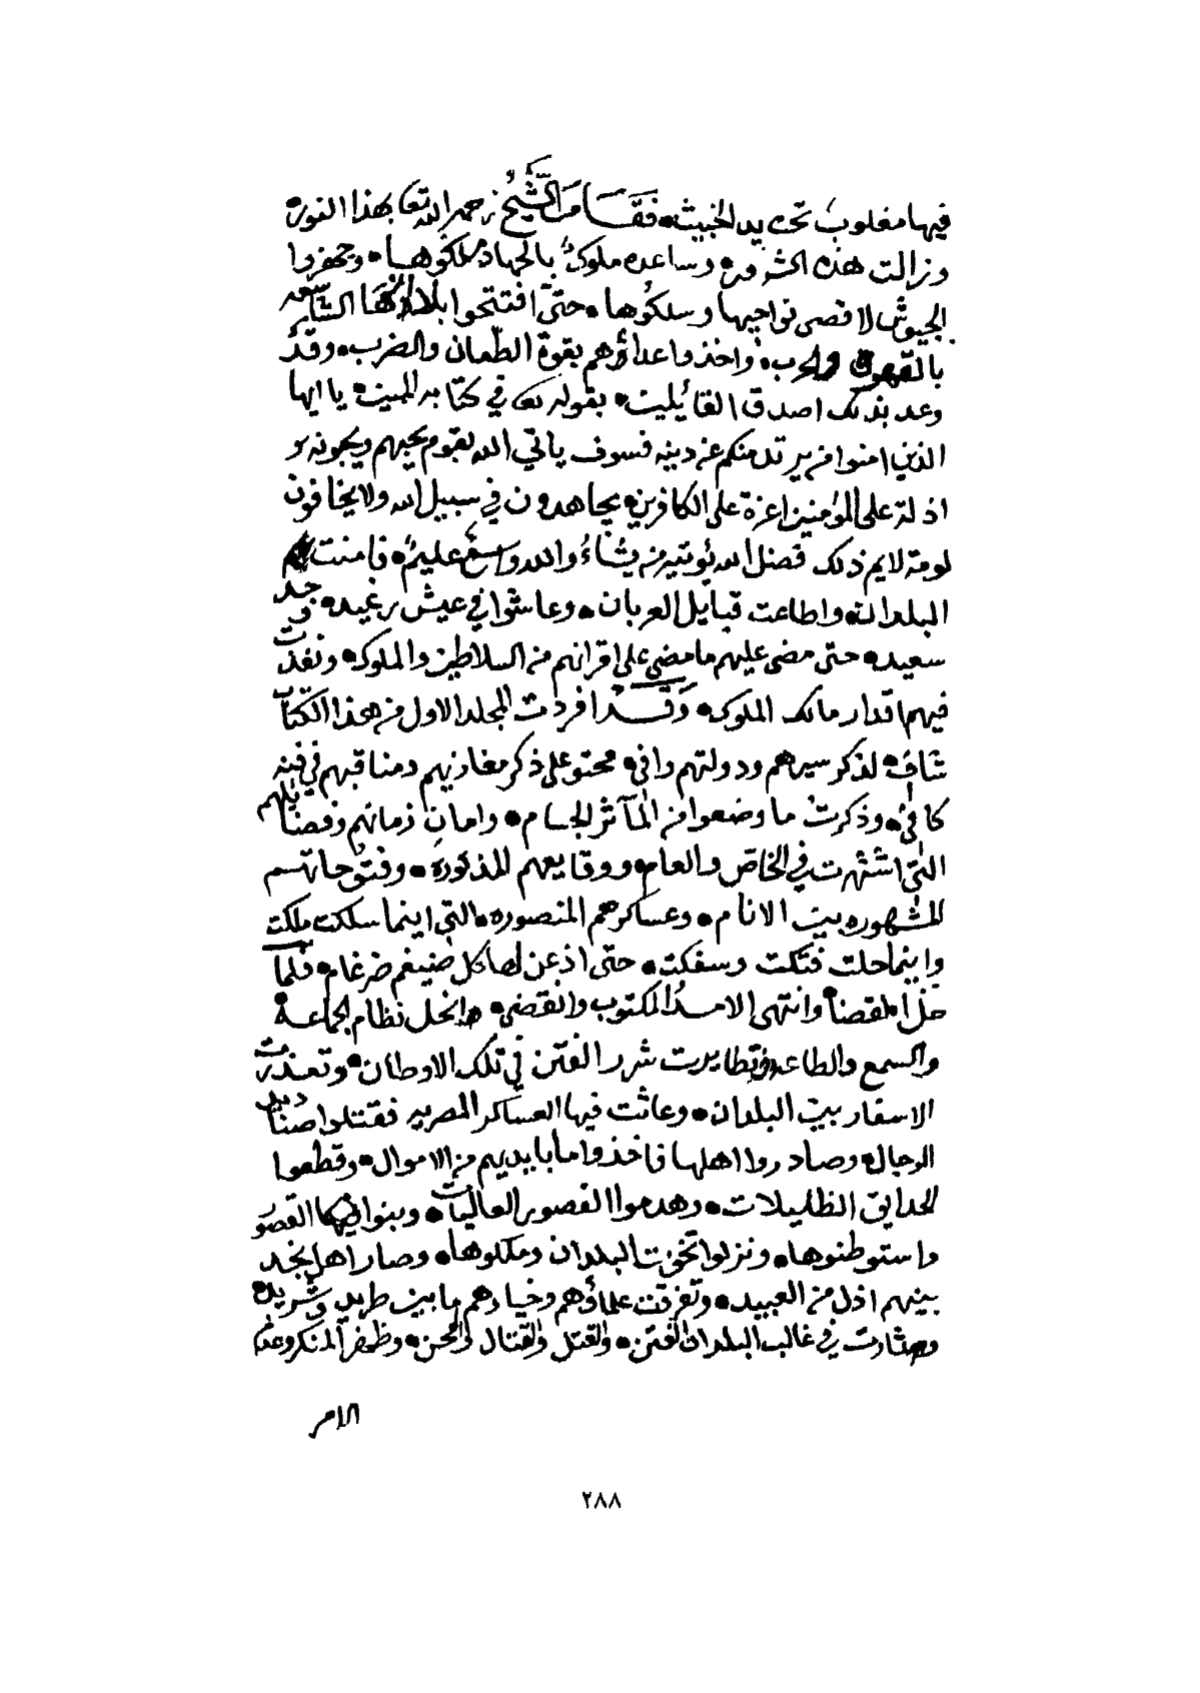 فيها مغلوب تحت يد الخبيث، فقام الشيخ رحمه الله تعا بهذا النوره
وزالت هذه الشرور، وساعده ملوك بالجهاد ملكوها، وجهزوا
الجيوش لاقصى نواحيها وسلكوها، حتى افتتحوا بلادها الشاسعه
بالقهر والحرب، واخذوا اعداؤهم بقوة الطعان والضرب، وقد
وعد بذلك اصدق القائلين، بقوله تعا في كتابه المبين، يا ايها
الذين امنوا من يرتد منكم عن دينه فسوف ياتي الله بقوم يحبهم ويحبونه
اذلة على المؤمنين اعزة على الكافرين يجاهدون في سبيل الله ولا يخافون
لومة لايم ذلك فضل الله يؤتيه من يشاء والله واسع عليم، فامنت بهم
البلدان، واطاعت قبايل العربان، وعاشوا في عيش رغيد، وجد
سعيد، حتى مضى عليهم ما مضى على اقرانهم من السلاطين والملوك، ونفذت
فيهم اقدار مالك الملوك، وقد افردت المجلد الاول من هذا الكتاب
شاف، لذكر سيرهم ودولتهم وافي، محتو على ذكر مغازيهم ومناقبهم في فنه
كافي، وذكرت ما وضعوا من المآثر الجسام، وامان زمانهم وفضايلهم
التي اشتهرت في الخاص والعام، ووقايعهم المذكورة، وفتوحاتهم
المشهوره بين الانام، وعساكرهم المنصوره، التي اينما سلكت ملكت
واينما حلت فتكت وسفكت، حتى اذعن لها كل ضيغم ضرغام، فلما
حل القضا وانتهى الامد المكتوب وانقضى، وانحل نظام الجماعة
والسمع والطاعه، وتطايرت شرر الفتن في تلك الاوطان، وتعذرت
الاسفار بين البلدان، وعاثت فيها العساكر المصريه فقتلوا صناديد
الرجال، وصادروا اهلها فاخذوا ما بايديهم من الاموال، وقطعوا
الحدايق الظليلات، وهدموا القصور العاليات، وبنوا فيها القصور
واستوطنوها، ونزلوا تخوت البلدان وملكوها، وصار اهل نجد
بينهم اذل من العبيد، وتفرقت علماؤهم وخيارهم ما بين طريد وشريد،
وثارت في غالب البلدان الفتن، والقتل والقتال والمحن، وظهر المنكر وعدم
الامر
٢٨٨